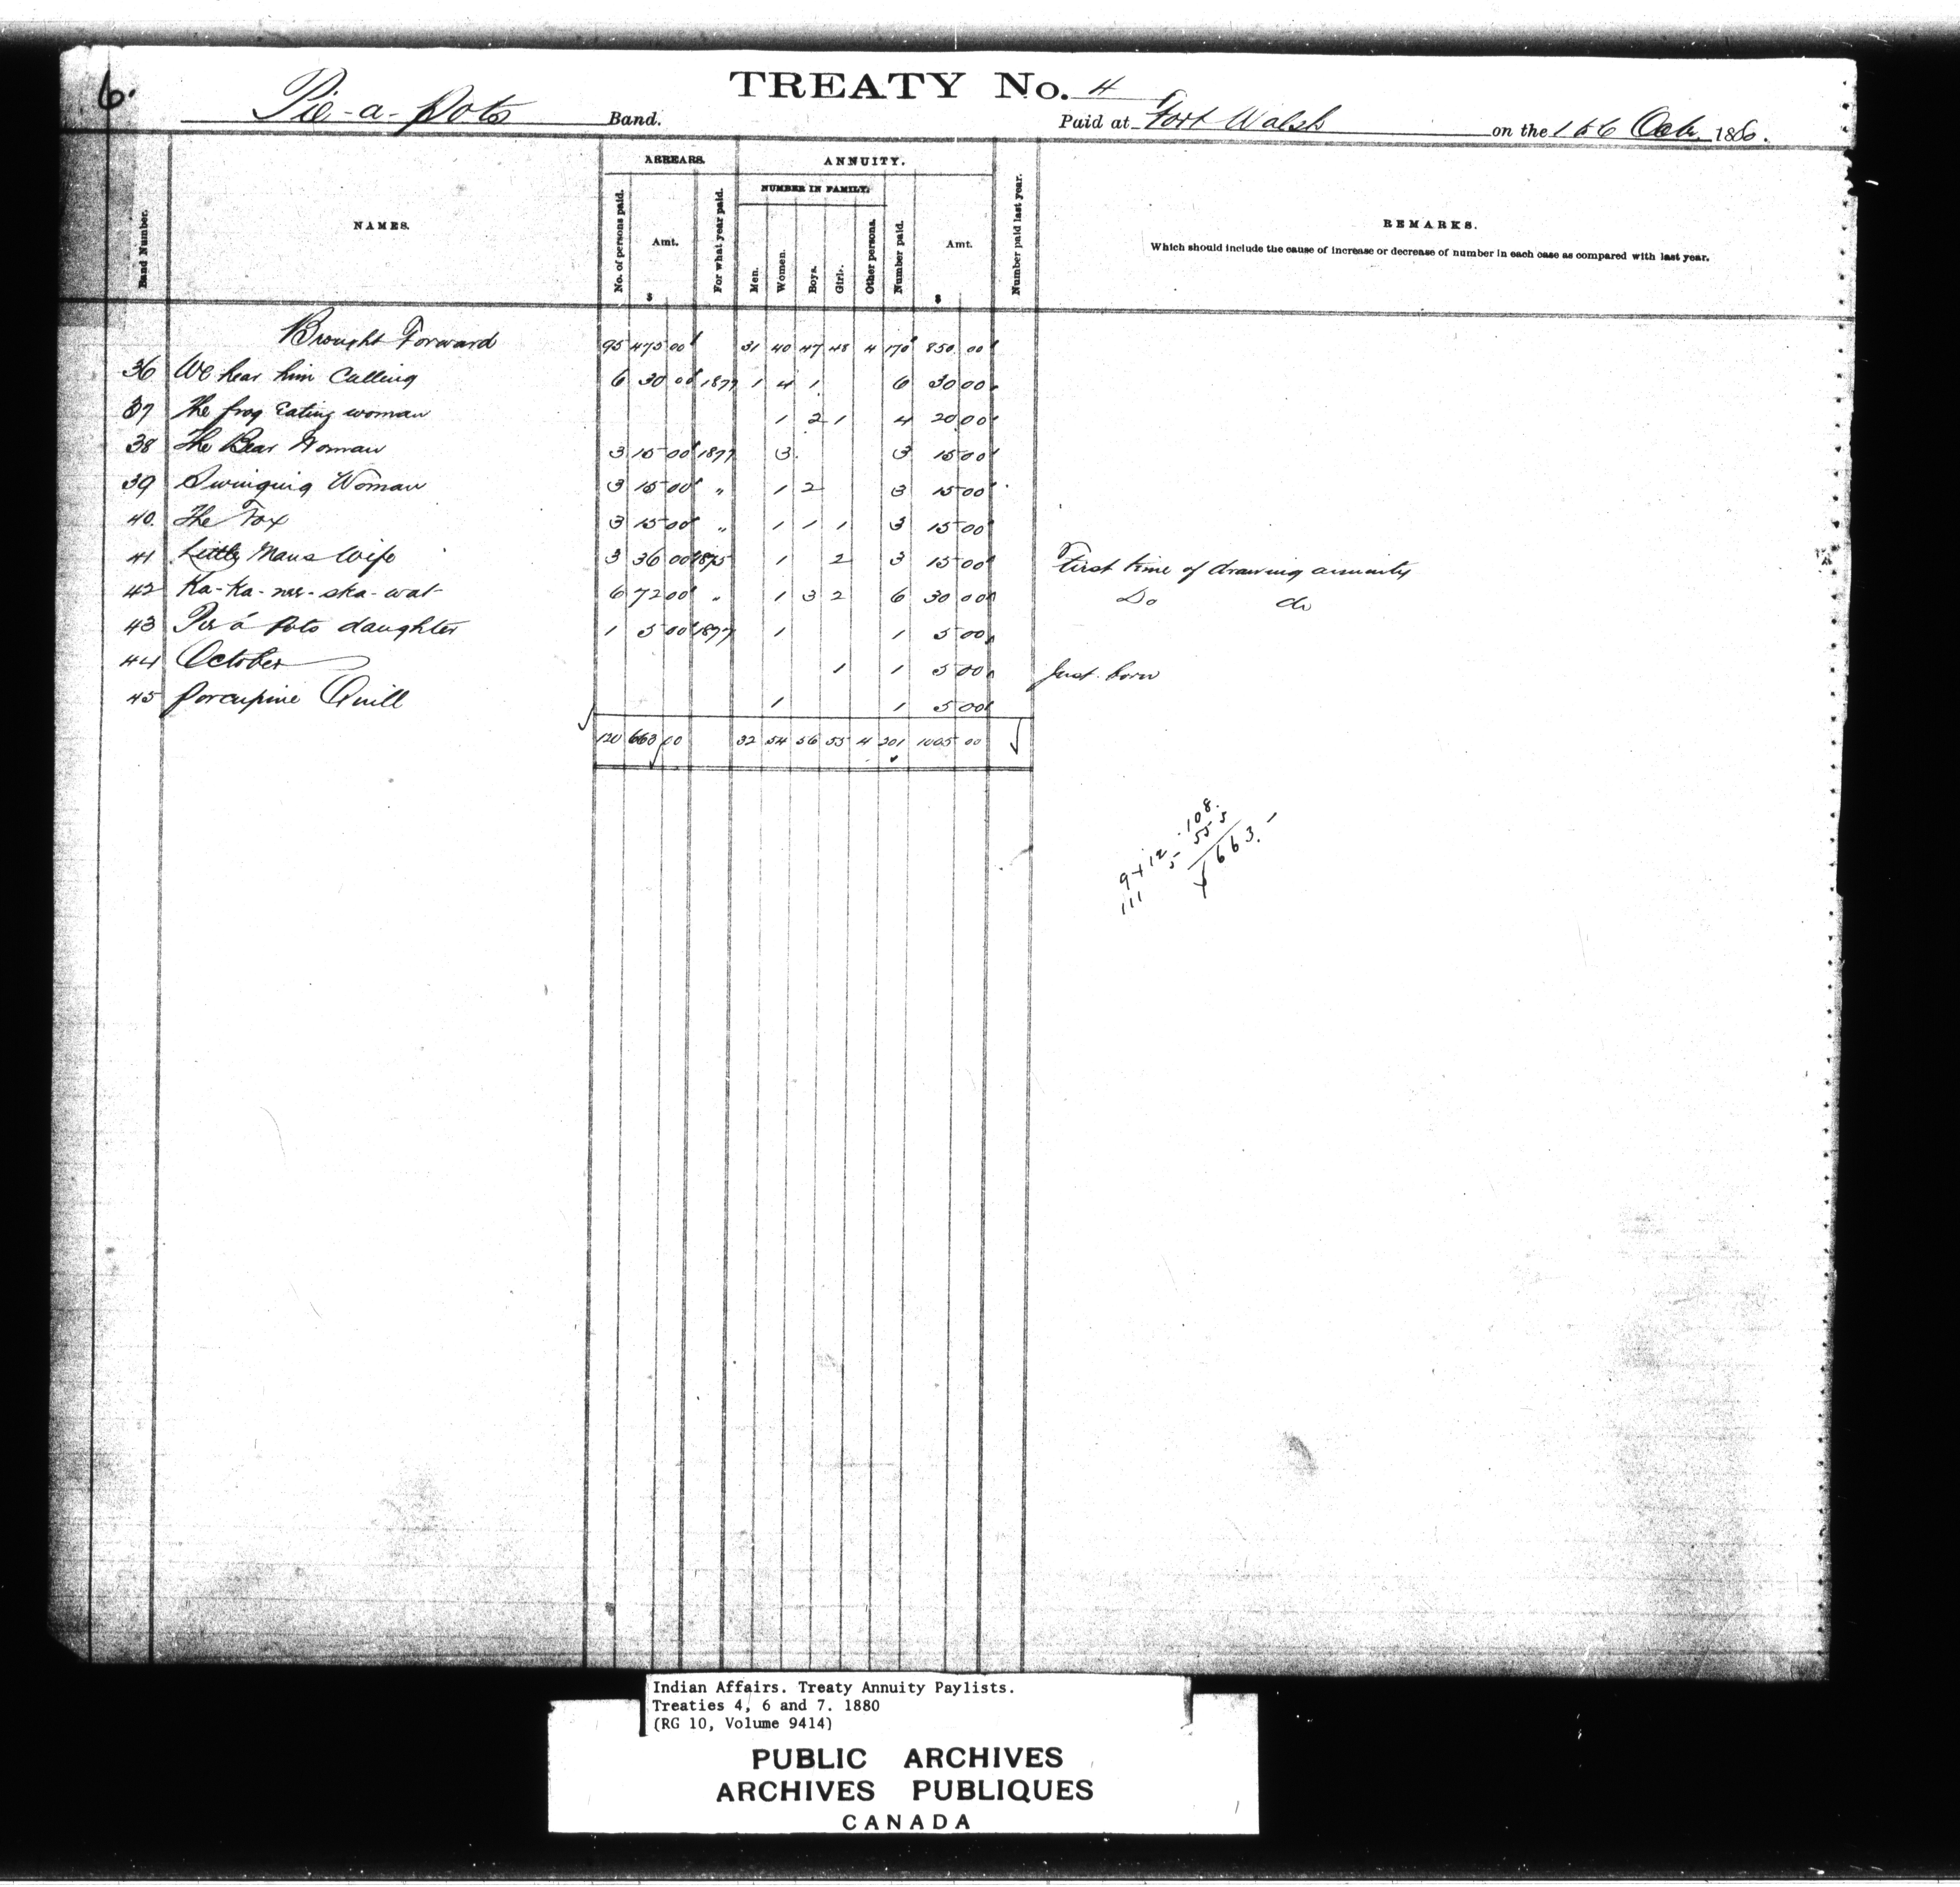 6.
TREATY No. 4
Pie-a-pots Band. Paid at Fort Walsh on the Oct. 1880.
Band Number. NAMES. ARREARS. No. of persons paid. Amt. $ For what year paid. ANNUITY. NUMBER IN FAMILY. Men. Women. Boys. Girls. Other persons. Number paid. Amt. $ Number paid last year. REMARKS.
Which should include the cause of increase or decrease of number in each case as compared with last year.
Brought Forward 95 475 00 31 40 47 48 4 170 850 00
36 We hear him Calling 6 30 00 1877 1 4 1 6 30 00
37 The frog Eating woman 1 2 1 4 20 00
38 The Bear Woman 3 15 00 1877 3 3 15 00
39 Swinging Woman 3 15 00 " 1 2 3 15 00
40. The Fox 3 15 00 " 1 1 1 3 15 00
41 Little Mans Wife 3 36 00 1875 1 2 3 15 00 First time of drawing annuity
42 Ka-Ka- -ska-wat- 6 72 00 " 1 3 2 6 30 00 Do do
43 Pie á Pots daughter 1 5 00 1877 1 1 5 00
44 October 1 1 5 00 Just born
45 Porcupine Quill 1 1 5 00
120 663 00 32 54 56 55 4 201 1005 00
9 + 12 108.
111 5 555
663.
Indian Affairs. Treaty Annuity Paylists.
Treaties 4, 6 and 7. 1880
(RG 10, Volume 9414)
PUBLIC ARCHIVES
ARCHIVES PUBLIQUES
CANADA